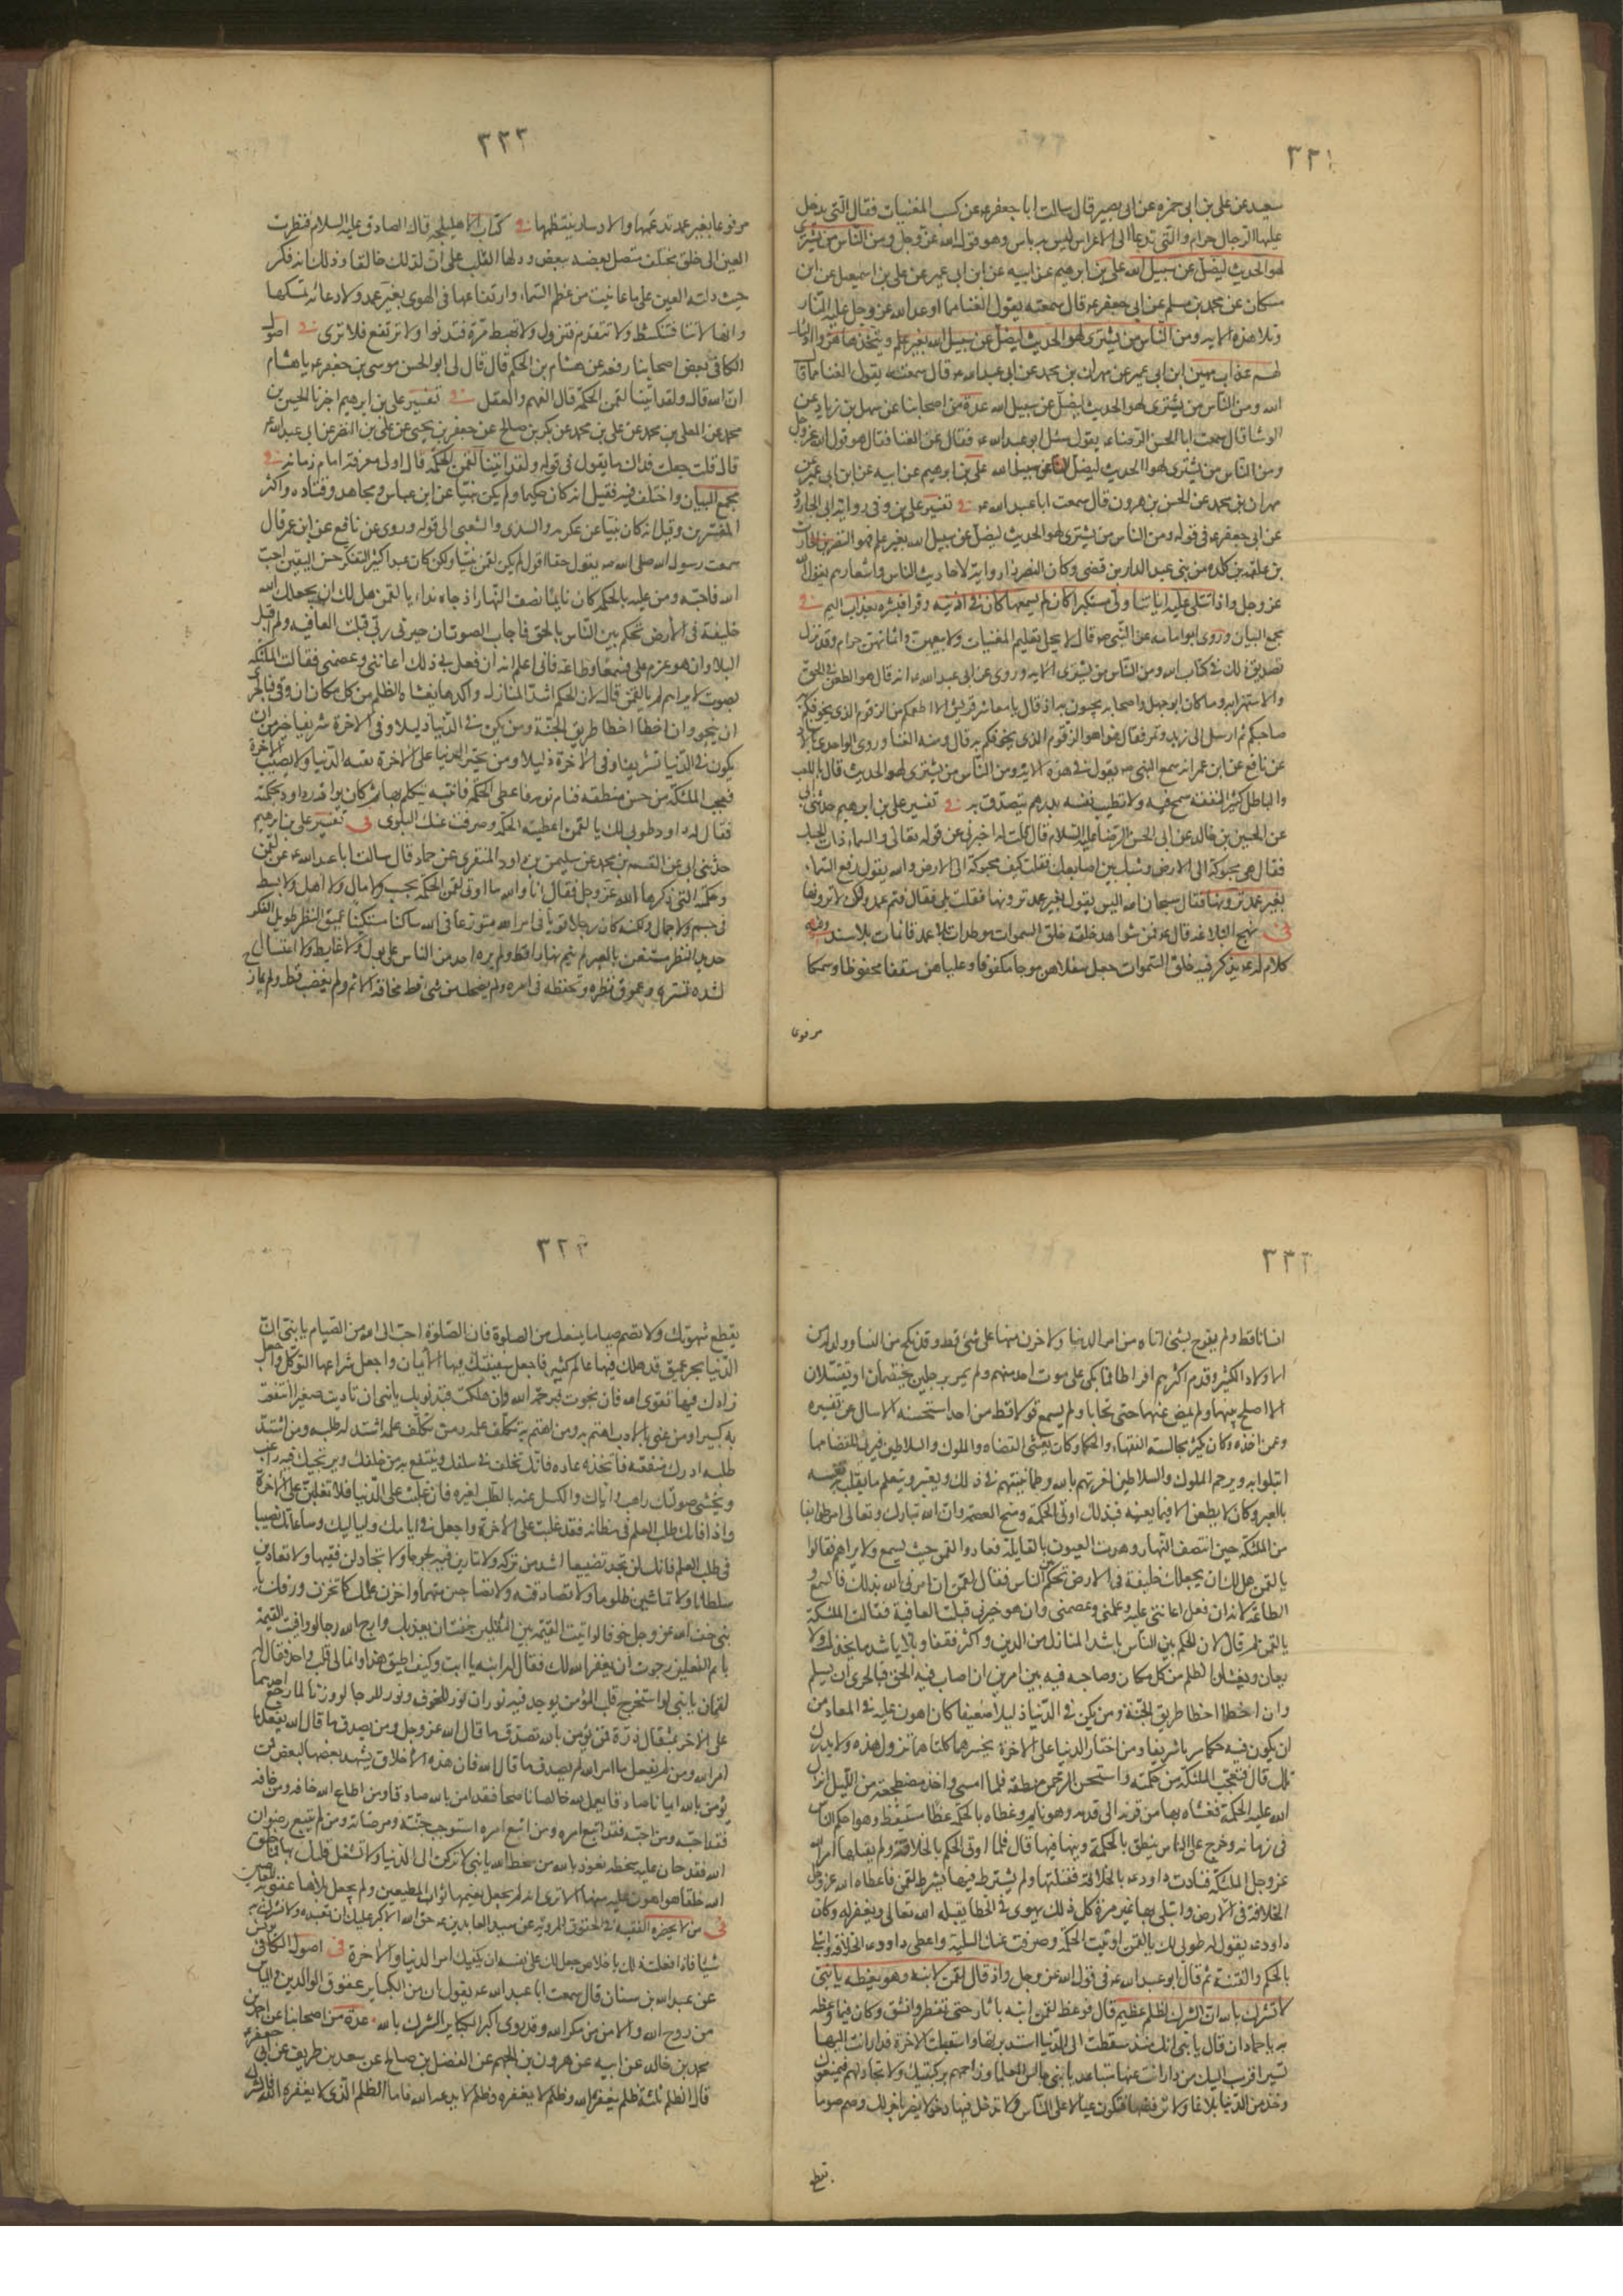 ٣٣١
سعيد عن على بن ابى حمزه عن ابى بصير قال سالت ابا جعفر عن كسب المغنيات فقال التى يدخل
عليها الرجال حرام والتى تدعا الى الاعراس ليس به باس وهو قول الله عز وجل ومن الناس من يشترى
لهو الحديث ليضل عن سبيل الله على بن ابرهيم عن ابيه عن ابن ابى عمير عن على بن اسمعيل عن ابن
مسكان عن محمد بن مسلم عن ابى جعفر ع قال سمعته يقول الغنا مما اوعد الله عز وجل عليه النار
وتلا هذه الايه ومن الناس من يشترى لهو الحديث ليضل عن سبيل الله بغير علم ويتخذها هزوا اولئك
لهم عذاب مهين ابن ابى عمير عن مهران بن محمد عن ابى عبد الله ع قال سمعته يقول الغنا مما قال
الله ومن الناس من يشترى لهو الحديث ليضل عن سبيل الله عدة من اصحابنا عن سهل بن زياد عن
الوشا قال سمعت ابا الحسن الرضا ع يقول سئل ابو عبد الله ع فقال عن الغنا فقال هو قول الله عز وجل
ومن الناس من يشترى لهو الحديث ليضل عن سبيل الله على بن ابرهيم عن ابيه عن ابن ابى عمير عن
مهران بن محمد عن الحسن بن هرون قال سمعت ابا عبد الله ع فى تفسير على بن وفى رواية ابى الجارود
عن ابى جعفر ع فى قوله ومن الناس من يشترى لهو الحديث ليضل عن سبيل الله بغير علم فهو النضر بن الحارث
بن علقمه بن كلده من بنى عبد الدار بن قصى وكان النضر ذا رواية لاحاديث الناس واشعارهم يقول الله
عز وجل واذا تتلى عليه اياتنا ولى مستكبرا كان لم يسمعها كان فى اذنيه وقرا فبشره بعذاب اليم فى
مجمع البيان وروى ابو امامه عن النبى ص قال لا يحل تعليم المغنيات ولا بيعهن واثمانهن حرام وقد نزل
تصديق ذلك فى كتاب الله ومن الناس من يشترى الايه وروى عن ابى عبد الله ع انه قال هو الطعن فى الحق
والاستهزاء به وما كان ابو جهل واصحابه يجيئون به اذ قال يا معاشر قريش الا اطعمكم من الزقوم الذى يخوفكم به
صاحبكم ثم ارسل الى زبد وتمر فقال هذا هو الزقوم الذى يخوفكم به قال ومنه الغنا وروى الواحدى بالاسناد
عن نافع عن ابن عمر انه سمع النبى ص يقول فى هذه الاية ومن الناس من يشترى لهو الحديث قال باللعب
والباطل كثير النفقه سمح فيه ولا تطيب نفسه بدرهم يتصدق به فى تفسير على بن ابرهيم حدثنى ابى
عن الحسين بن خالد عن ابى الحسن الرضا عليه السلام قال قلت له اخبرنى عن قوله تعالى والسماء ذات الحبك
فقال هى محبوكة الى الارض وشبك بين اصابعه فقلت كيف محبوكة الى الارض والله يقول رفع السماء
بغير عمد ترونها فقال سبحان الله اليس يقول بغير عمد ترونها فقلت بلى فقال فثم عمد ولكن لا ترونها
فى نهج البلاغه قال ع فمن شواهد خلقه خلق السموات موطدات بلا عمد قائمات بلا سند وفيه
كلام له ع يذكر فيه خلق السموات جعل سفلاهن موجا مكفوفا وعلياهن سقفا محفوظا وسمكا
مرفوعا
٣٣٢
مرفوعا بغير عمد تدعمها ولا دسار ينتظمها فى كتاب الاهليلجه قال الصادق عليه السلام فنظرت
العين الى خلق مختلف متصل بعضه ببعض ودلها القلب على ان لذلك خالقا وذلك انه فكر
حيث دلته العين على ما عاينت من عظم السماء وارتفاعها فى الهوى بغير عمد ولا دعامة تمسكها
وانها لا تتاخر فتنكشط ولا تتقدم فتزول ولا تهبط مرة فتدنوا ولا ترتفع فلا ترى فى اصول
الكافى بعض اصحابنا رفعه عن هشام بن الحكم قال قال لى ابو الحسن موسى بن جعفر ع يا هشام
ان الله قال ولقد اتينا لقمن الحكمة قال الفهم والعقل فى تفسير على بن ابرهيم اخبرنا الحسين بن
محمد عن المعلى بن محمد عن على بن محمد عن بكر بن صالح عن جعفر بن يحيى عن على بن النضر عن ابى عبد الله ع
قال قلت جعلت فداك ما يقول فى قوله ولقد اتينا لقمن الحكمة قال اوتى معرفة امام زمانه فى
مجمع البيان واختلف فيه فقيل انه كان حكيما ولم يكن نبيا عن ابن عباس ومجاهد وقتاده واكثر
المفسرين وقيل انه كان نبيا عن عكرمه والسدى والشعبى الى قوله وروى عن نافع عن ابن عمر قال
سمعت رسول الله صلى الله ص يقول حقا اقول لم يكن لقمن نبيا ولكن كان عبدا كثير التفكر حسن اليقين احب
الله فاحبه ومن عليه بالحكمة كان نائما نصف النهار اذ جاءه نداء يا لقمن هل لك ان يجعلك الله
خليفة فى الارض تحكم بين الناس بالحق فاجاب الصوت ان خيرنى ربى قبلت العافيه ولم اقبل
البلا وان هو عزم على فسمعا وطاعة فانى اعلم انه ان فعل بى ذلك اعاننى وعصمنى فقالت الملئكة
بصوت لا يراهم لم يا لقمن قال لان الحكم اشد المنازل واكدها يغشاه الظلم من كل مكان ان وقى فبالحرى
ان ينجو وان اخطا اخطا طريق الجنة ومن يكن فى الدنيا ذليلا وفى الاخرة شريفا خير من ان
يكون فى الدنيا شريفا وفى الاخرة ذليلا ومن يختر الدنيا على الاخرة تفته الدنيا ولا يصيب الاخرة
فعجب الملئكة من حسن منطقه فنام نومه فاعطى الحكمة فانتبه يتكلم بها ثم كان يوازر داود بحكمته
فقال له داود طوبى لك يا لقمن اعطيت الحكمة وصرفت عنك البلوى فى تفسير على بن ابرهيم
حدثنى ابى عن القسم بن محمد عن سليمن بن داود المنقرى عن حماد قال سالت ابا عبد الله ع عن لقمن
وحكمة التى ذكرها الله عز وجل فقال اما والله ما اوتى لقمن الحكمة بحسب ولا مال ولا اهل ولا بسط
فى جسم ولا جمال ولكنه كان رجلا قويا فى امر الله متورعا فى الله ساكنا سكينا عميق النظر طويل الفكر
حديد النظر مستغن بالعبر لم ينم نهارا قط ولم يره احد من الناس على بول ولا غايط ولا اغتسال
لشدة تستره وعموق نظره وتحفظه فى امره ولم يضحك من شى قط مخافة الاثم ولم يغضب قط ولم يمازح
٣٣٢
انسانا قط ولم يفرح بشئ اتاه من امر الدنيا ولا حزن منها على شئ قط وقد نكح من النسا وولد له من
الاولاد الكثيرة وقدم اكثرهم افراطا فما بكى على موت احد منهم ولم يمر برجلين يختصمان او يقتتلان
الا اصلح بينهما ولم يمض عنهما حتى تحابا ولم يسمع قولا قط من احد استحسنه الا سال عن تفسيره
وعمن اخذه وكان يكثر مجالسة الفقهاء والحكما وكان يغشى القضاه والملوك والسلاطين فيرثى للقضاة مما
ابتلوا به ويرحم الملوك والسلاطين لعزتهم بالله وطمانينتهم فى ذلك ويعتبر ويتعلم ما يغلب به نفسه
بالعبر وكان لا يظعن الا فيما يعينه فبذلك اوتى الحكمة ومنح العصمة وان الله تبارك وتعالى امر طوائفا
من الملئكة حين انتصف النهار وهدت العيون بالقايلة فنادوا لقمن حيث يسمع ولا يراهم فقالوا
يا لقمن هل لك ان يجعلك خليفة فى الارض تحكم بين الناس فقال لقمن ان امرنى الله بذلك فالسمع و
الطاعة لانه ان فعل اعاننى عليه وعلمنى وعصمنى وان هو خيرنى قبلت العافية فقالت الملئكة
يا لقمن لم قال لان الحكم بين الناس باشد المنازل من الدين واكثر فتنا وبلاء ما يخذل ولا
يعان ويغشاه الظلم من كل مكان وصاحبه فيه بين امرين ان اصاب فيه الحق فبالحرى ان يسلم
وان اخطا اخطا طريق الجنة ومن يكن فى الدنيا ذليلا ضعيفا كان اهون عليه فى المعاد من
ان يكون فيه حكما سريا شريفا ومن اختار الدنيا على الاخرة يخسرهما كلتاهما تزول هذه ولا يدرك
تلك قال فتعجبت الملئكة من حكمته واستحسن الرحمن منطقه فلما امسى واخذ مضجعه من الليل انزل
الله عليه الحكمة فغشاه بها من قرنه الى قدمه وهو نايم وغطاه بالحكمة غطاء فاستيقظ وهو احكم الناس
فى زمانه وخرج على الناس ينطق بالحكمة ويبثها فيها قال فلما اوتى الحكم بالخلافة ولم يقبلها امر الله
عز وجل الملئكة فنادت داود ع بالخلافة فقبلها ولم يشترط فيها بشرط لقمن فاعطاه الله عز وجل
الخلافة فى الارض وابتلى بها غير مرة كل ذلك يهوى فى الخطا يقيله الله تعالى ويغفر له وكان
داود ع يقول له طوبى لك يا لقمن اوتيت الحكمة وصرفت عنك البلية واعطى داود ع الخلافة وابتلى
بالحكم والفتنة ثم قال ابو عبد الله ع فى قول الله عز وجل واذ قال لقمن لابنه وهو يعظه يا بنى
لا تشرك بالله ان الشرك لظلم عظيم قال فوعظ لقمن ابنه باثار حتى تفطر وانشق وكان فيما وعظه
به يا حماد ان قال يا بنى انك منذ سقطت الى الدنيا استدبرتها واستقبلت الاخرة فدار انت اليها
تسير اقرب اليك من دار انت عنها متباعد يا بنى جالس العلما وزاحمهم بركبتيك ولا تجادلهم فيمنعوك
وخذ من الدنيا بلاغا ولا ترفضها فتكون عيالا على الناس ولا تدخل فيها دخولا يضر باخرتك وصم صوما
تقطع
٣٣٣
يقطع شهوتك ولا تصم صياما يمنعك من الصلوة فان الصلوة احب الى الله من الصيام يا بنى ان
الدنيا بحر عميق قد هلك فيها عالم كثير فاجعل سفينتك فيها الايمان واجعل شراعها التوكل واجعل
زادك فيها تقوى الله فان نجوت فبرحمة الله وان هلكت فبذنوبك يا بنى ان تادبت صغيرا انتفعت
به كبيرا ومن عنى بالادب اهتم به ومن اهتم به تكلف علمه ومن تكلف علمه اشتد له طلبه ومن اشتد
طلبه ادرك منفعته فاتخذه عاده فانك تخلف فى سلفك وينتفع به من خلفك ويرتجيك فيه راغب
ويخشى صولتك راهب واياك والكسل عنه بالطلب لغيره فان غلبت على الدنيا فلا تغلبن على الاخرة
واذا فاتك طلب العلم فى مظانه فقد غلبت على الاخرة واجعل فى ايامك ولياليك وساعاتك نصيبا
فى طلب العلم فانك لن تجد تضييعا اشد من تركه ولا تمارين فيه لجوجا ولا تجادلن فقيها ولا تعادين
سلطانا ولا تماشين ظلوما ولا تصادقنه ولا تصاحبن متهما واخزن علمك كما تخزن ورقك يا
بنى خف الله عز وجل خوفا لو اتيت القيمة ببر الثقلين خفت ان يعذبك وارج الله رجا لو وافيت القيمة
باثم الثقلين رجوت ان يغفر الله لك فقال له ابنه يا ابت وكيف اطيق هذا وانما لى قلب واحد فقال له
لقمان يا بنى لو استخرج قلب المؤمن يوجد فيه نوران نور للخوف ونور للرجا لو وزنا لما رجح احدهما
على الاخر بمثقال ذرة فمن يؤمن بالله تصدق ما قال الله عز وجل ومن يصدق ما قال الله يفعل ما
امر الله ومن لم يفعل ما امر الله لم يصدق ما قال الله فان هذه الاخلاق يشهد بعضها لبعض فمن
يؤمن بالله ايمانا صادقا يعمل لله خالصا ناصحا فقد امن بالله صادقا ومن اطاع الله خافه ومن خافه
فقد احبه ومن احبه فقد اتبع امره ومن اتبع امره استوجب جنته ومرضاته ومن لم يتبع رضوان
الله فقد هان عليه سخطه نعوذ بالله من سخط الله يا بنى لا تركن الى الدنيا ولا تشغل قلبك بها فما خلق
الله خلقا هو اهون عليه منها الا ترى انه لم يجعل نعيمها ثواب المطيعين ولم يجعل بلاها عقوبة للعاصين
فى من لا يحضره الفقيه فى الحقوق المروية عن سيد العابدين ع حق الله الاكبر عليك ان تعبده ولا تشرك به
شيئا فاذا فعلت ذلك باخلاص جعل لك على نفسه ان يكفيك امر الدنيا والاخرة فى اصول الكافى يونس
عن عبد الله بن سنان قال سمعت ابا عبد الله ع يقول ان من الكباير عقوق الوالدين والياس
من روح الله والامن من مكر الله وقد روى اكبر الكباير الشرك بالله عدة من اصحابنا عن احمد بن
محمد بن خالد عن ابيه عن هرون بن الجهم عن المفضل بن صالح عن سعد بن طريف عن ابى جعفر ع
قال الظلم ثلثة ظلم يغفره الله وظلم لا يغفره وظلم لا يدعه الله فاما الظلم الذى لا يغفره الله فالشرك